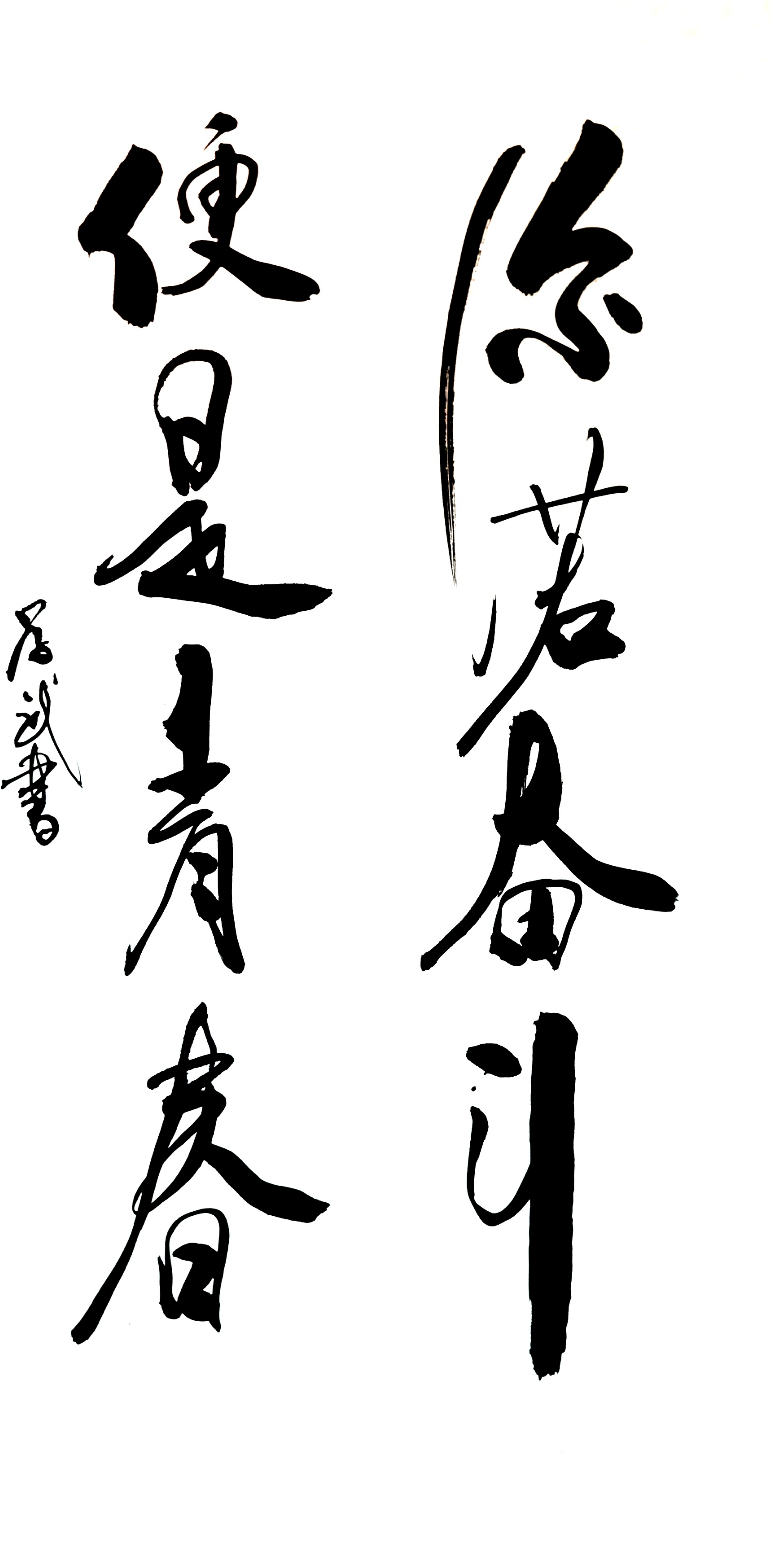 你若奋斗
便是青春
武书